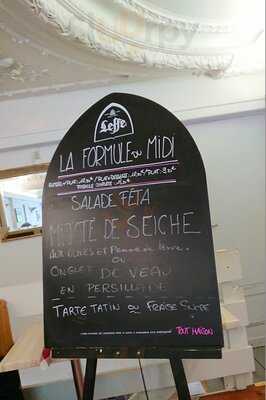 Leffe
LA FORMULE DU MIDI
SALADE FÉTA
MIJOTÉ DE SEICHE
AUX OLIVES ET Pomme de terre.
OU
ONGLET DE VEAU
EN PERSILLADE
TARTE TATIN OU FRAISE
TOUT MAISON